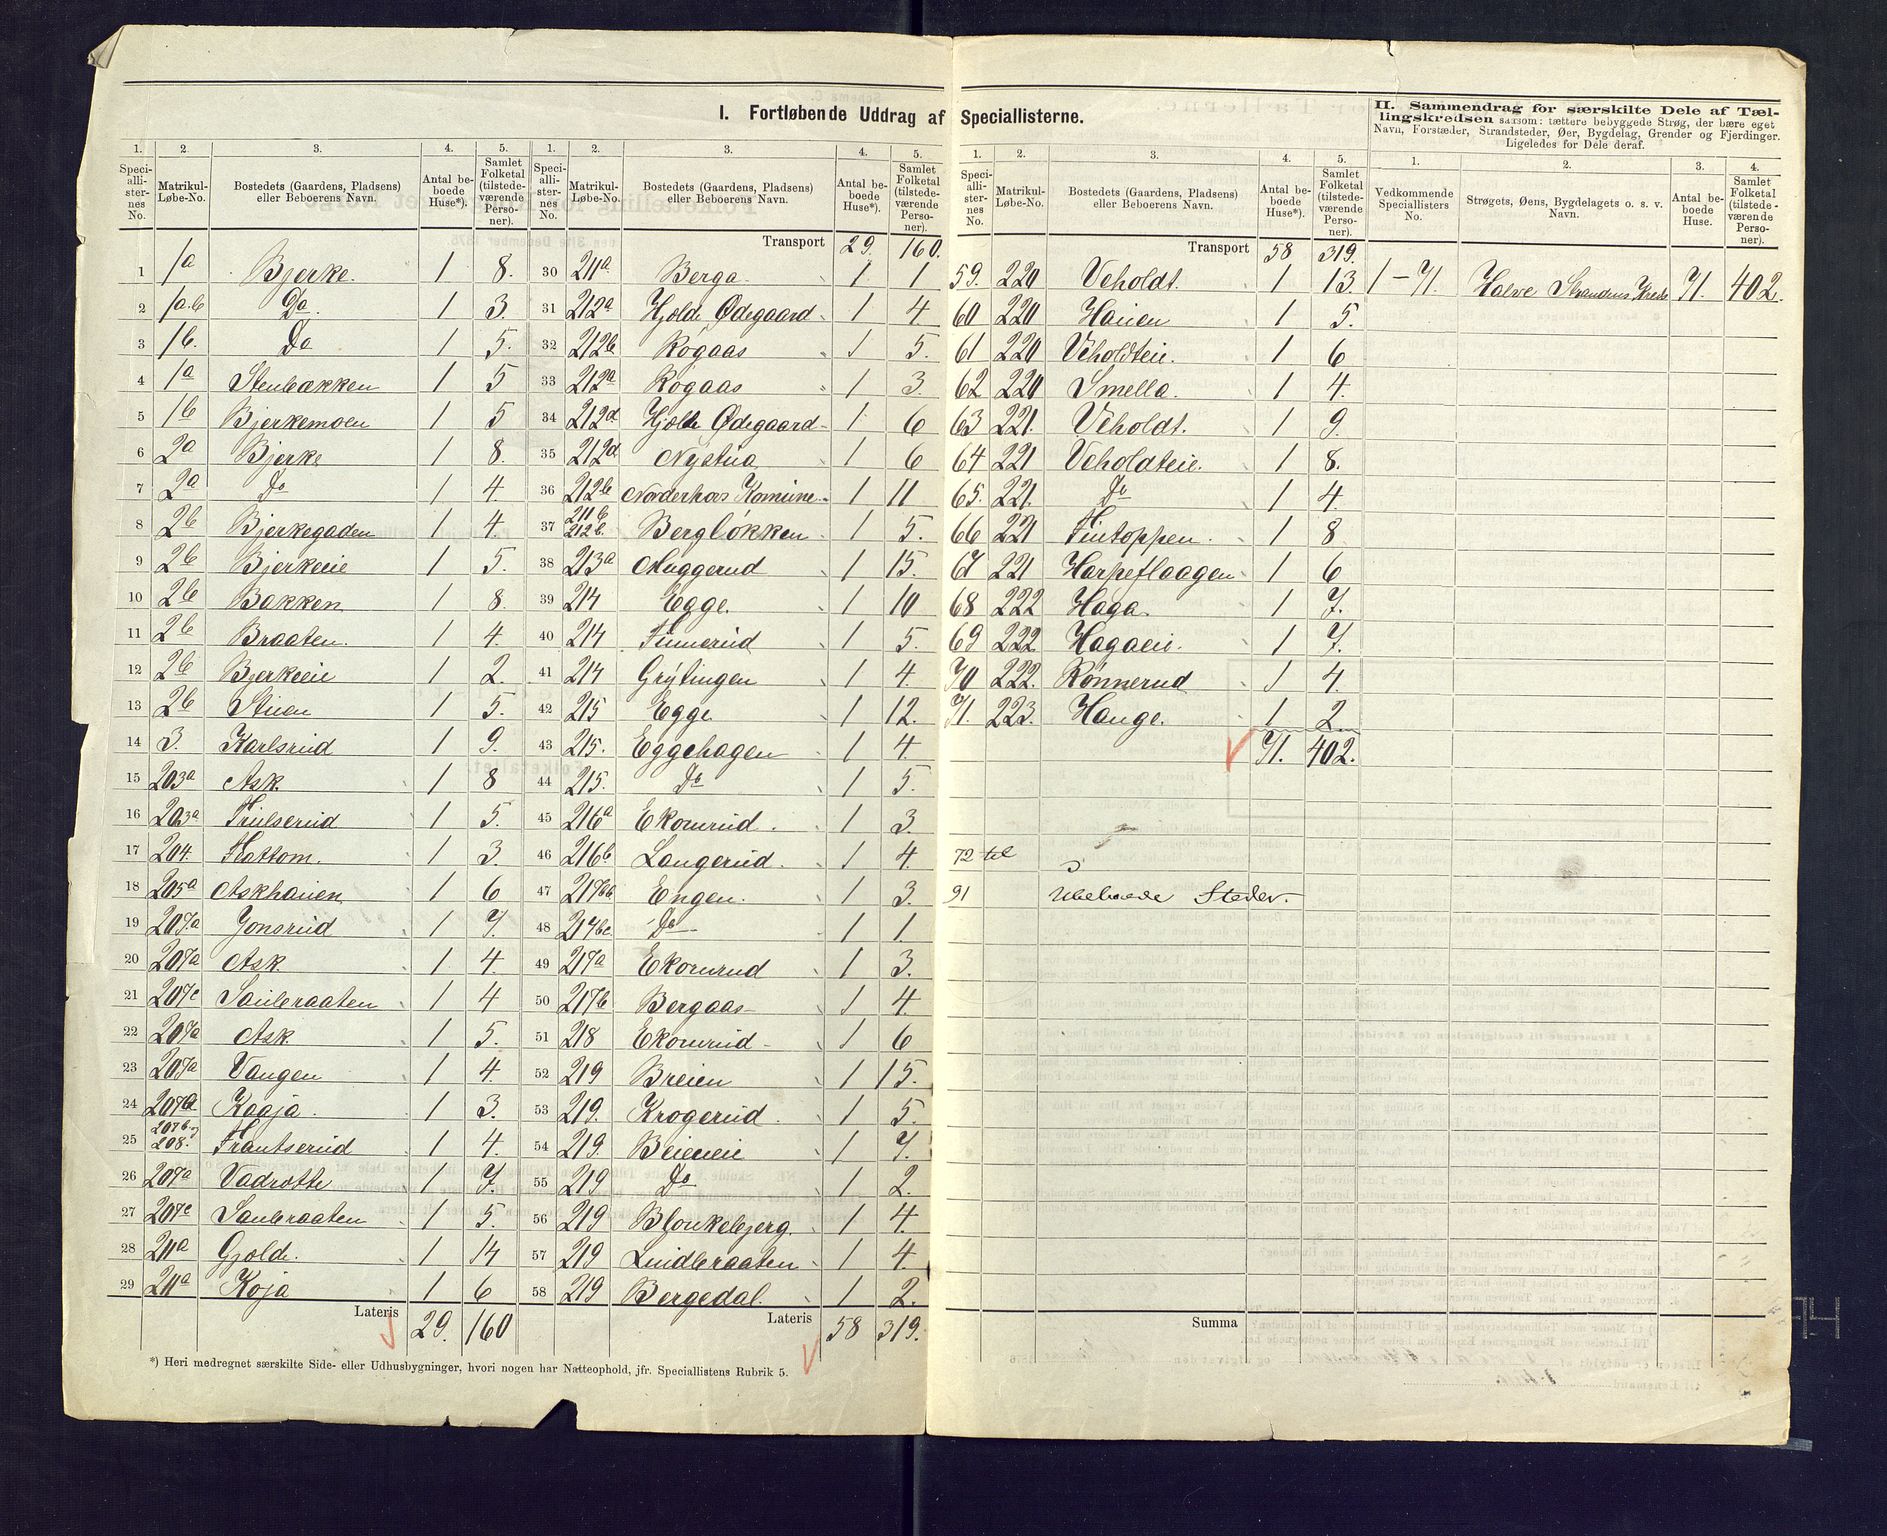 I. Fortløbende Uddrag af Speciallisterne.
II. Sammendrag for særskilte Dele af Tællingskredsen saasom: tættere bebyggede Strøg, der bære eget Navn, Forstæder, Strandsteder, Øer, Bygdelag, Grender og Fjerdinger. Ligeledes for Dele deraf.
1. 2. 3. 4. 5. 1. 2. 3. 4. 5. 1. 2. 3. 4. 5. 1. 2. 3. 4.
Speciallisternes No. Matrikul-Løbe-No. Bostedets (Gaardens, Pladsens) eller Beboerens Navn. Antal beboede Huse*). Samlet Folketal (tilstedeværende Personer).
Speciallisternes No. Matrikul-Løbe-No. Bostedets (Gaardens, Pladsens) eller Beboerens Navn. Antal beboede Huse*). Samlet Folketal (tilstedeværende Personer).
Speciallisternes No. Matrikul-Løbe-No. Bostedets (Gaardens, Pladsens) eller Beboerens Navn. Antal beboede Huse*). Samlet Folketal (tilstedeværende Personer).
Vedkommende Speciallisters No. Strøgets, Øens, Bygdelagets o. s. v. Navn. Antal beboede Huse. Samlet Folketal (tilstedeværende Personer).
1 1a Bjerke. 1 8.
2 1a.b Do. 1 3.
3 1b. Do 1 5.
4 1a Stenbakken 1 5
5 1b Bjerkemoen 1 5
6 2a Bjerke 1 8.
7 2a Do 1 4.
8 2b Bjerkegaden 1 4.
9 2b Bjerkeeie 1 5.
10 2b Bakken 1 8.
11 2b Braaten. 1 4.
12 2b Bjerkeeie 1 2.
13 2b Stuen 1 5.
14 3. Karlsrud 1 9.
15 203a Ask. 1 8
16 203a Trulserud 1 5.
17 204. Flattom. 1 3.
18 205a Askhauen 1 6
19 207a Jonsrud 1 7.
20 207a Ask 1 4.
21 207c Saubraaten 1 4
22 207a Ask. 1 5.
23 207a Vangen 1 4.
24 207a Kaaja. 1 3.
25 207b og 208. Frantserud 1 4.
26 207a Vadrotte 1 7.
27 207c Saubraaten 1 5.
28 211a Gjold. 1 14
29 211a Koja 1 6
Lateris 29. 160
*) Heri medregnet særskilte Side- eller Udhusbygninger, hvori nogen har Natteophold, jfr. Speciallistens Rubrik 5.
Transport 29. 160.
30 211a Berga 1 1
31 212a Hjold Ødegaard 1 4.
32 212b Rogaas 1 5.
33 212a Rogaas 1 3.
34 212d Hjold Ødegaard 1 6
35 212d Nystua 1 6
36 212b Norderhovs Komune 1 11
37 211b 212b. Bergløkken 1 5.
38 213a Muggerud 1 15.
39 214 Egge. 1 10
40 214 Finnerud 1 5.
41 214 Grytingen 1 4.
42 215 Egge 1 12.
43 215. Eggehagen 1 4.
44 215. Do 1 5.
45 216a Ekornrud. 1 3.
46 216b Langerud. 1 4.
47 217bb Engen. 1 3.
48 217bc Do 1 1.
49 217a Ekornrud 1 3.
50 217b Bergaas 1 4.
51 218 Ekornrud 1 6
52 219 Breien 1 15.
53 219. Krogerud. 1 5.
54 219. Breieneie 1 7.
55 219 Do 1 2.
56 219 Blonkebjerg. 1 4.
57 219 Lindbraaten 1 4
58 219 Bergedal. 1 2.
Lateris 58 319.
Transport 58 319.
59. 220 Veholdt. 1 13.
60 220 Hauen 1 5.
61 220 Veholdteie. 1 6
62 220 Smella. 1 4.
63 221. Veholdt. 1 9.
64 221 Veholdteie. 1 8.
65. 221. Do 1 4.
66 221 Tintoppen. 1 8
67 221 Harpeflaagen 1 6
68 222 Haga. 1 7.
69 222. Hagaeie. 1 7.
70 222. Rønnerud 1 4.
71. 223. Hauge. 1 2.
71. 402.
72 til
91 Ubeboede Steder.
Summa
1 – 71. Halve Strandens Kreds 71. 402.